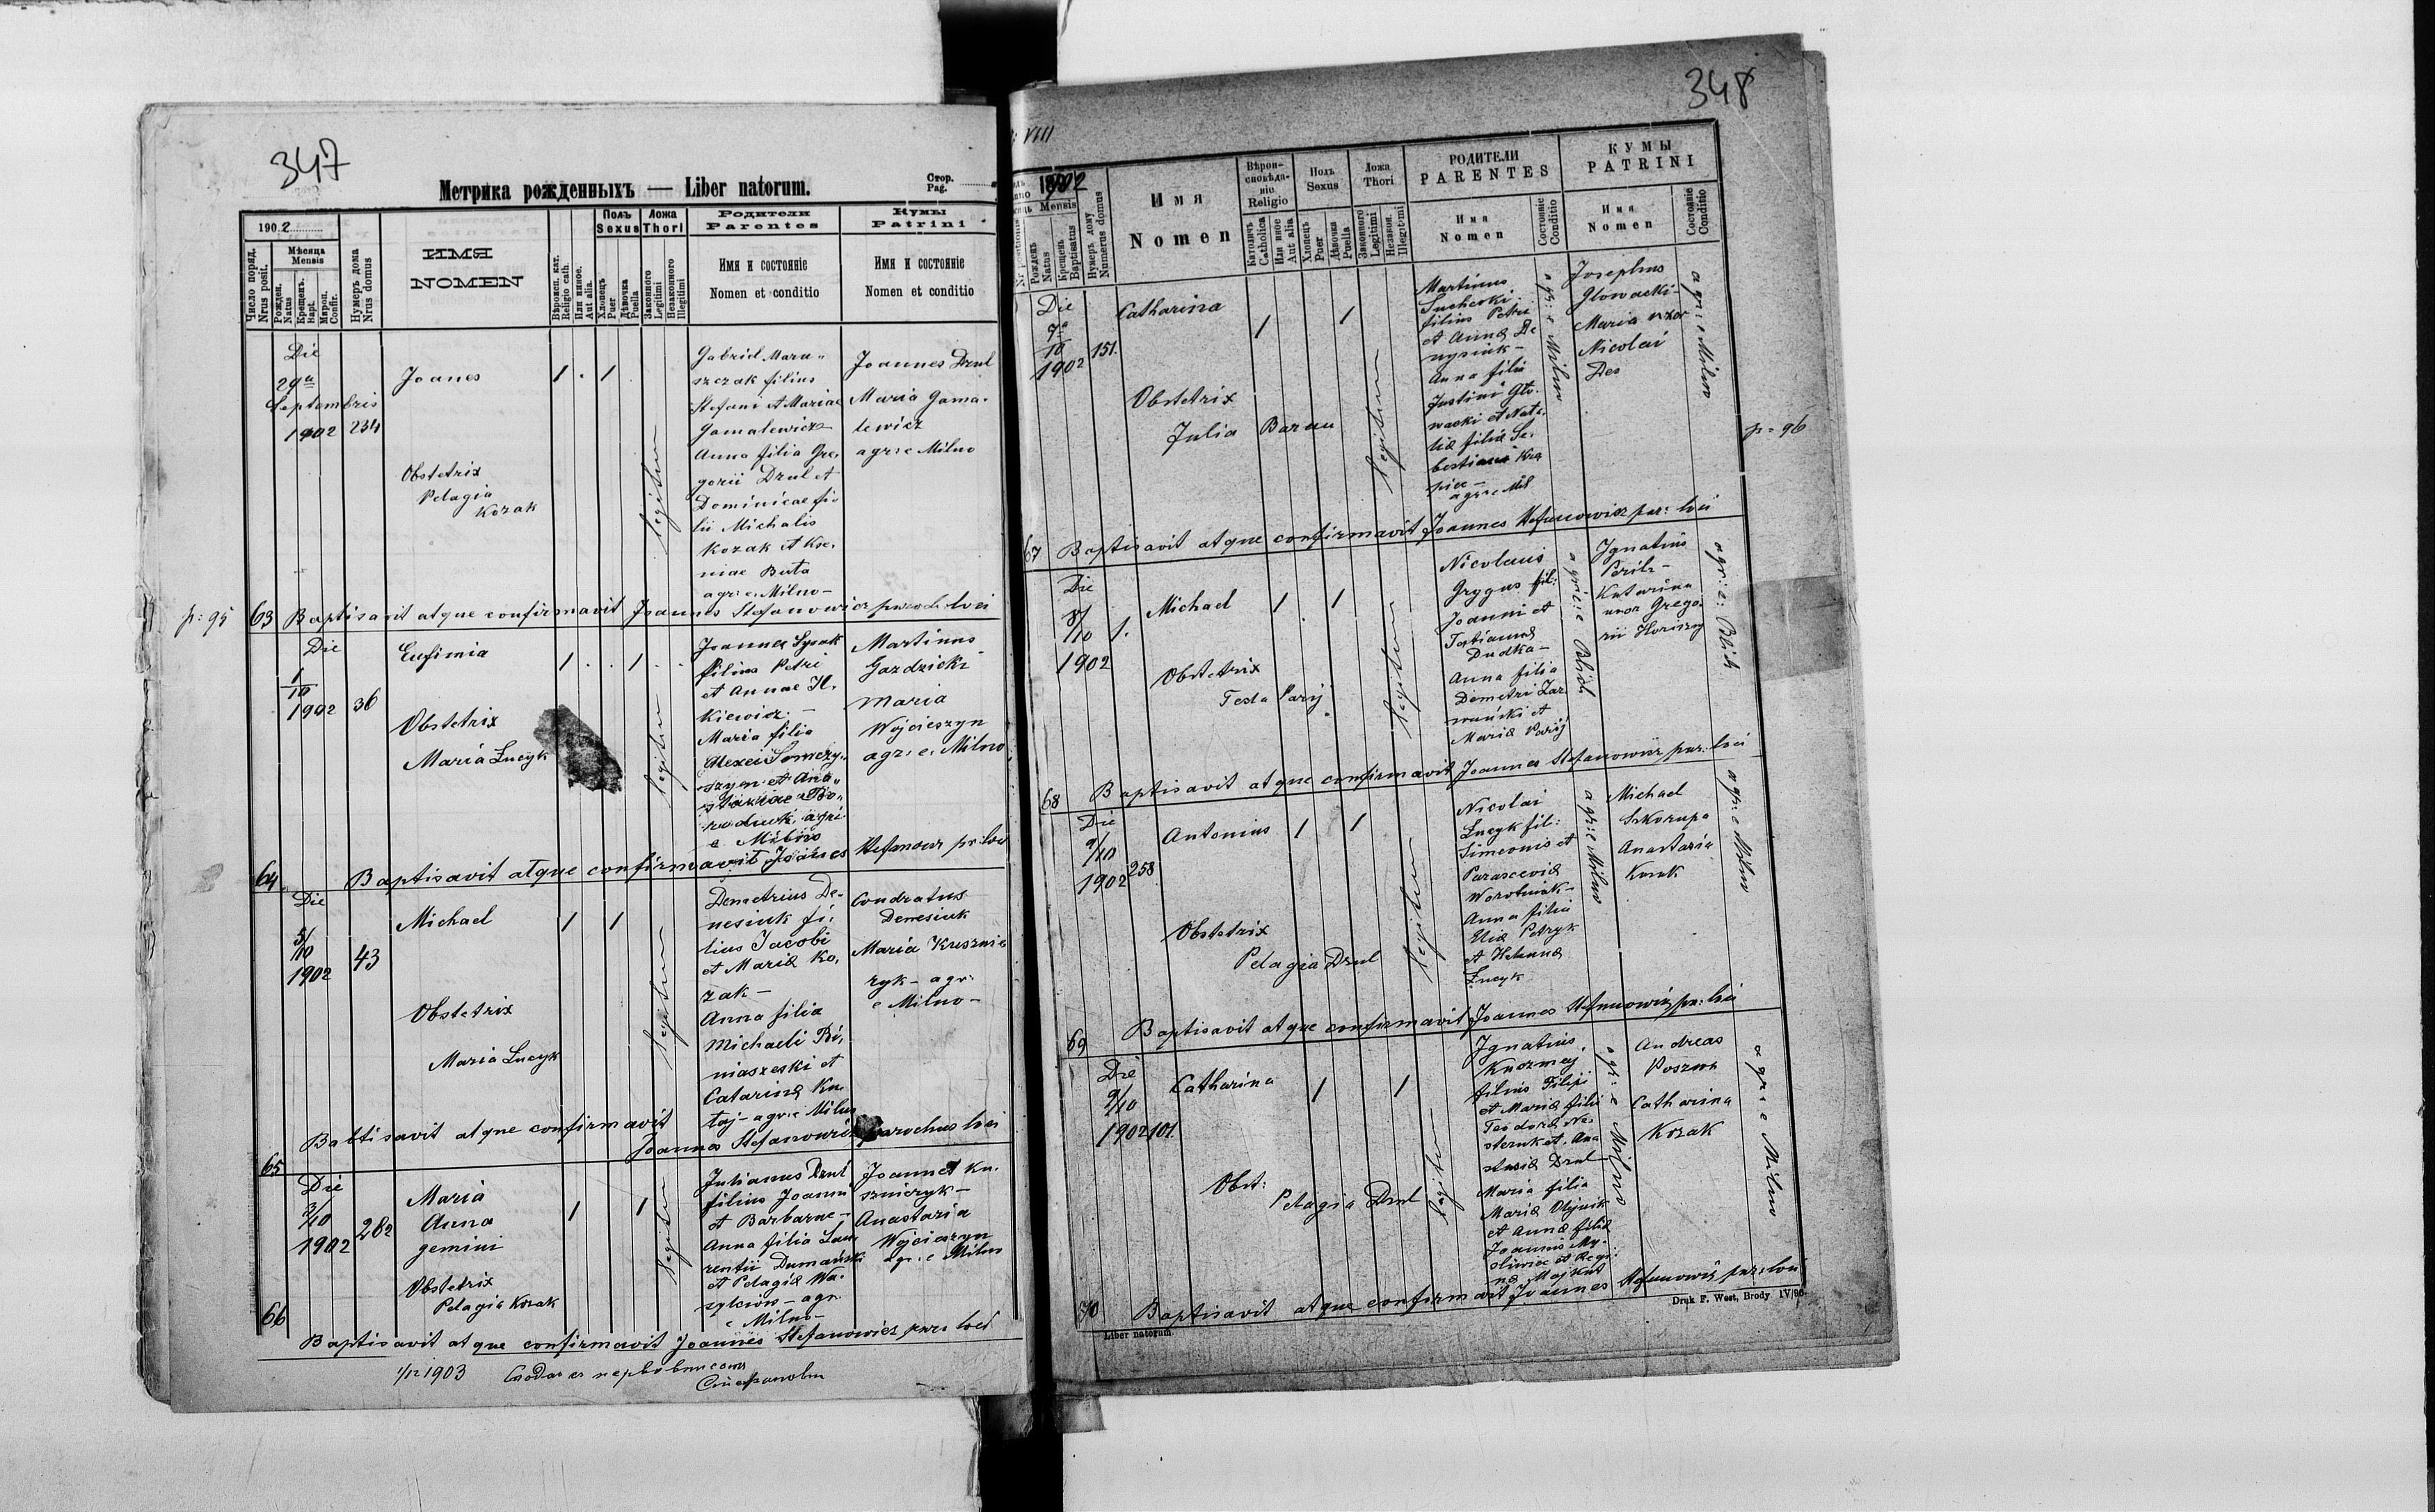 347
Метрика рожденныхъ — Liber natorum.
Стор.
Pag.
1902
Число поряд.
Nrus posit.
Мѣсяца
Mensis
Рожден.
Natus
Крещенъ.
Bapt.
Мѵроп.
Confir.
Нумеръ дома
Nrus domus
ИМЯ
NOMEN
Вѣроисп. кат.
Religio cath.
Или иное.
Aut alia.
Полъ
Sexus
Хлопецъ
Puer
Дѣвочка
Puella
Ложа
Thori
Законного
Legitimi
Незаконного
Illegitimi
Родители
Parentes
Имя и состояніе
Nomen et conditio
Кумы
Patrini
Имя и состояніе
Nomen et conditio
Die
29a
Septembris
1902 234
Joanes
1 . 1
legitim
Obstetrix
Pelagia
Kozak
Gabriel Maru„
szczak filius
Stefani et Mariae
Gamalewicz
Anna filia Gre,
gorii Drul et
Dominicae fi„
lii Michalis
Kozak et
niae Buta
agr: e. Milno
Joannes Drul
Maria Gama„
lewicz
agr: e Milno
p: 95
63 Baptisavit atque confirmavit Joannes Stefanowicz paroch. loci
Die
1/10
1902 36
Eufimia
1 . . 1 . .
legitim
Obstetrix
Maria Łucyk
Joannes Sysak
filius Petri
et Annae Il,
kiewicz. —
Maria filia
Alexei
et Ana„
e Milno
Martinus
Gazdzicki
Maria
Wojcieszyn
agr: e. Milno
64. Baptisavit atque confirmavit Joannes Stefanowicz pr: loci
Die
5/10
1902 43
Michael
1 1
legitim
Obstetrix
Maria Łucyk
Demetrius De„
nesiuk fi,
lius Jacobi
et Mariæ Ko,
zak —
Anna filia
Michaeli Bi,
niaszeski et
Catarinæ
agr: e Milno
Condratus
Denesiuk
Maria Kuszni
ryk — agr:
e Milno —
Babtisavit atque confirmavit
Joannes Stefanowicz parochus loci
65
Die
2/10
1902 282
Maria
Anna
gemini
1 1
legitim
Obstetrix
Pelagia Kozak
Julianus Drul
filius Joanni
et Barbarae —
Anna filia Lau
rentii Dumański
et Pelagiæ Wa.
sylciów — agr.
e Milno —
Joannes Ku.
szniryk —
Anastazia
Wojcieszyn
agr: e Milno
66
Baptisavit atque confirmavit Joannes Stefanowicz par: loci
1/12 1903
348
VIII
1902
Mensis
Рожденъ
Natus
Крещенъ
Baptisatus
Нумеръ дому
Numerus domus
Имя
Nomen
Вѣроисповѣданіе
Religio
Католичъ
Catholica
Или иное
Aut alia
Полъ
Sexus
Хлопецъ
Puer
Дѣвочка
Puella
Ложа
Thori
Законного
Legitimi
Незакон.
Illegitimi
РОДИТЕЛИ
PARENTES
Имя
Nomen
Состояніе
Conditio
КУМЫ
PATRINI
Имя
Nomen
Состояніе
Conditio
Die
7a
10
1902 151.
Catharina
1 1
legitim
Obstetrix
Julia Baran
Martinus
Sucheski
filius Petri
et Annæ De
nysiuk —
Anna filia
Justini Gło.
waski et Nata,
liæ filiæ Se.
agr: e Mil
agr: e Milno
Josephus
Głowacki
Maria uxor
Nicolai
Des
agr: e Milno
p: 96
67 Baptisavit atque confirmavit Joannes Stefanowicz par: loci
Die
8/10
1902
1.
Michael
1 1
legitim
Obstetrix
Tesla Paryj
Nicolaus
Grygus fil:
Joanni et
Tatianæ
Dudka —
Anna filia
Demetri Zar
wański et
Mariæ Paryj
agr: e Blich
Ignatius
Katarina
uxor Grego„
rii
agr: e: Blich
68 Baptisavit atque confirmavit Joannes Stefanowicz par: loci
Die
9/10
1902 253
Antonius
1 1
legitim
Obstetrix
Pelagia Drul
Nicolai
Łucyk fil:
Simeonis et
Parasceviæ
Worotniak —
Anna filia
Eliæ Petryk
et Helenæ
Łucyk
agr: e Milno
Michael
Szkorupa
Anastazia
Kozak
agr: e Milno
69 Baptisavit atque confirmavit Joannes Stefanowicz par: loci
Die
9/10
1902 101.
Catharina
1 1
legitim
Obst:
Pelagia Drul
Ignatius
Kuzmej
filius Filipi
et Mariæ filii
Teodoræ Ne„
steruk et. Ana
stasiæ Drul —
Maria filia
Mariæ Olijnik
et Annæ filiæ
Joannis My.
śliwiec et Regi:
næ Majkut
agr: e Milno
Andreas
Poszwa
Catharina
Kozak
agr: e Milno
70 Baptisavit atque confirmavit Joannes Stefanowicz par: loci
Liber natorum
Druk F. West, Brody IV/96.